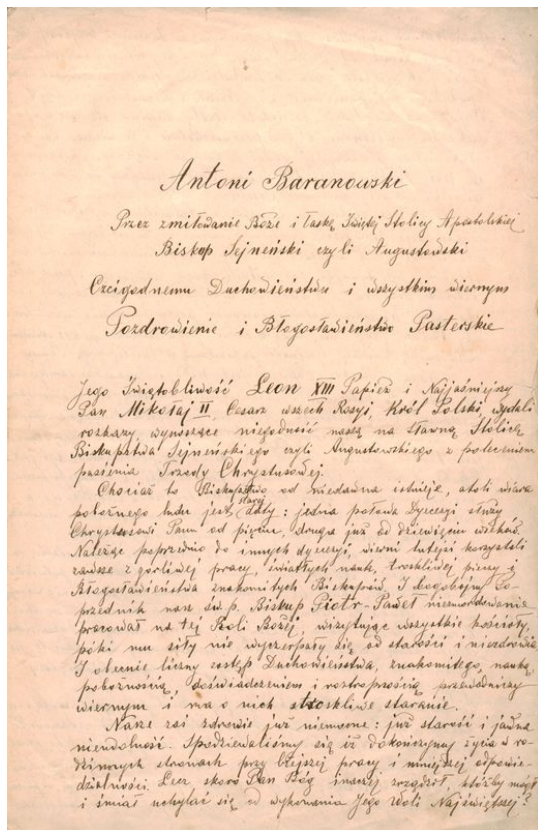 Antoni Baranowski
Przez zmiłowanie Boże i łaskę Świętej Stolicy Apostolskiej
Biskup Sejneński czyli Augustowski
Czcigodnemu Duchowieństwu i wszystkim wiernym
Pozdrowienie i Błogosławieństwo Pasterskie
Jego Świętobliwość Leon XIII Papież i Najjaśniejszy
Pan Mikołaj II, Cesarz wszech Rosyi, Król Polski, wydali
rozkazy wynoszące niegodność naszą na sławną Stolicę
Biskupstwa Sejneńskiego czyli Augustowskiego z poleceniem
pasienia Trzody Chrystusowej.
Chociaż to Biskupstwo od niedawna istnieje, atoli wiara
pobożnego ludu jest starej daty: jedna połowa Dyecezyi służy
Chrystusowi Panu od pięciu, druga już od dziewięciu wieków.
Należąc poprzednio do innych dyecezyj, wierni tutejsi korzystali
zawsze z gorliwej pracy, światłych nauk, troskliwej pieczy i
Błogosławieństwa znakomitych Biskupów. I bogobojny Po-
przednik nasz św. p. Biskup Piotr-Paweł niezmordowanie
pracował na tej Roli Bożej, wizytując wszystkie kościoły,
póki mu siły nie wyczerpały się od starości i niezdrowia.
I obecnie liczny zastęp Duchowieństwa, znakomitego, nauką,
pobożnością, doświadczeniem i roztropnością przewodniczy
wiernym i ma o nich troskliwe staranie.
Nasze zaś zdrowie już niemocne: już starość i jawna
nieudolność. Spodziewaliśmy się iż dokończymy życia w ro-
dzinnych stronach przy lżejszej pracy i mniejszej odpowie-
dzialności. Lecz skoro Pan Bóg inaczej rozrządził, któżby mógł
i śmiał uchylać się od wykonania Jego Woli Najświętszej?